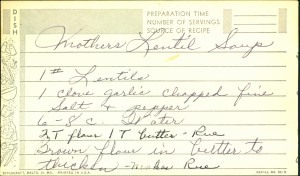 DISH
PREPARATION TIME
NUMBER OF SERVINGS
SOURCE OF RECIPE
Mothers Lentil Soup
1# Lentils
1 clove garlic chopped fine
Salt & pepper
6-8 C. Water
2T flour 1T butter - Rue
Brown flour in butter to
thicken - Makes Rue
PRINTED IN U.S.A.